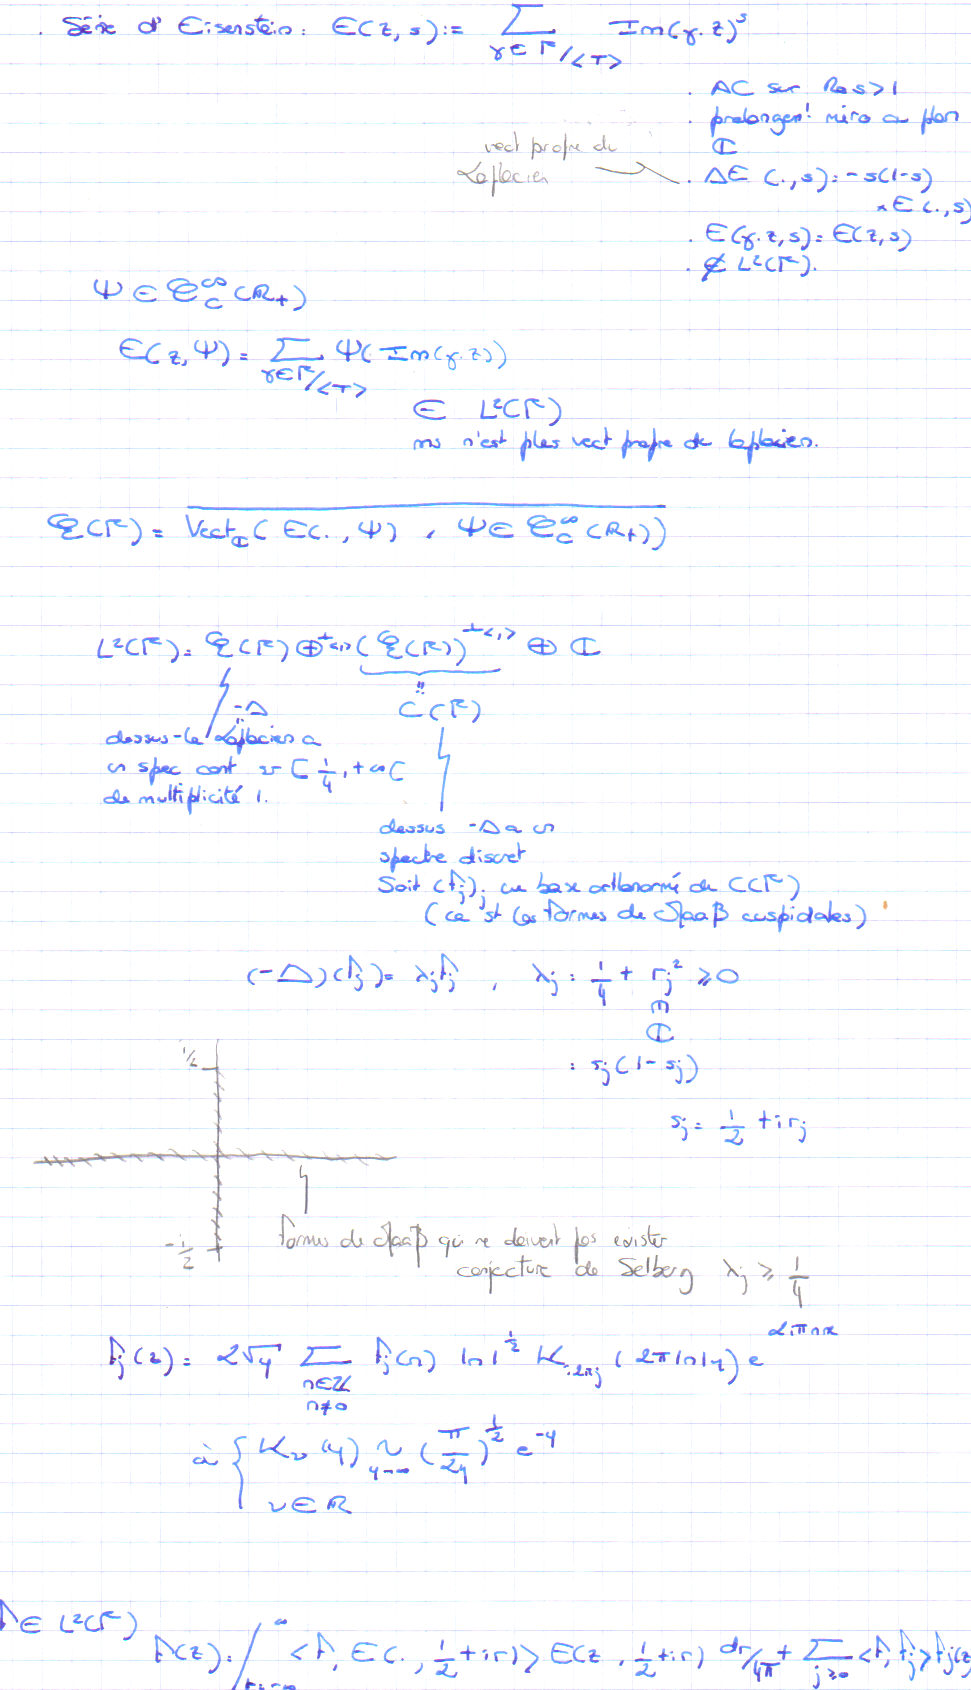 . Série d'Eisenstein : E(z, s) := ∑_{γ∈Γ/<T>} Im(γ.z)^s
. AC sur Re s > 1
. prolongem^t méro au plan ℂ
vect propre du Laplacien
. ΔE(., s) = -s(1-s) × E(., s)
. E(γ.z, s) = E(z, s)
. ∉ L²(Γ).
Ψ ∈ C_c^∞(ℝ₊)
E(z, Ψ) = ∑_{γ∈Γ/<T>} Ψ(Im(γ.z))
∈ L²(Γ)
ms n'est plus vect propre du laplacien.
ℰ(Γ) = \overline{Vect_ℂ(E(., Ψ), Ψ ∈ C_c^∞(ℝ₊))}
L²(Γ) = ℰ(Γ) ⊕^{⊥<,>} (ℰ(Γ))^{⊥<,>} ⊕ ℂ
=: C(Γ)
-Δ
dessus - le Laplacien a
un spec cont sur [1/4, +∞[
de multiplicité 1.
dessus -Δ a un
spectre discret
Soit (f_j)_j une base orthonormé de C(Γ)
(ce st les formes de Maaβ cuspidales)
(-Δ)(f_j) = λ_j f_j , λ_j = 1/4 + r_j² ≥ 0
∈ ℂ
= s_j(1 - s_j)
s_j = 1/2 + i r_j
i/2
-i/2
formes de Maaβ qui ne doivent pas exister
conjecture de Selberg λ_j ≥ 1/4
f_j(z) = 2√y ∑_{n∈ℤ, n≠0} f_j(n) |n|^{1/2} K_{i2πj}(2π|n|y) e^{2iπnx}
à { K_ν(y) ~_{y→∞} (π/2y)^{1/2} e^{-y}
ν ∈ ℝ
f ∈ L²(Γ)
f(z) = ∫^{∞} <f, E(., 1/2 + ir)> E(z, 1/2 + ir) dr/4π + ∑_{j≥0} <f, f_j> f_j(z)